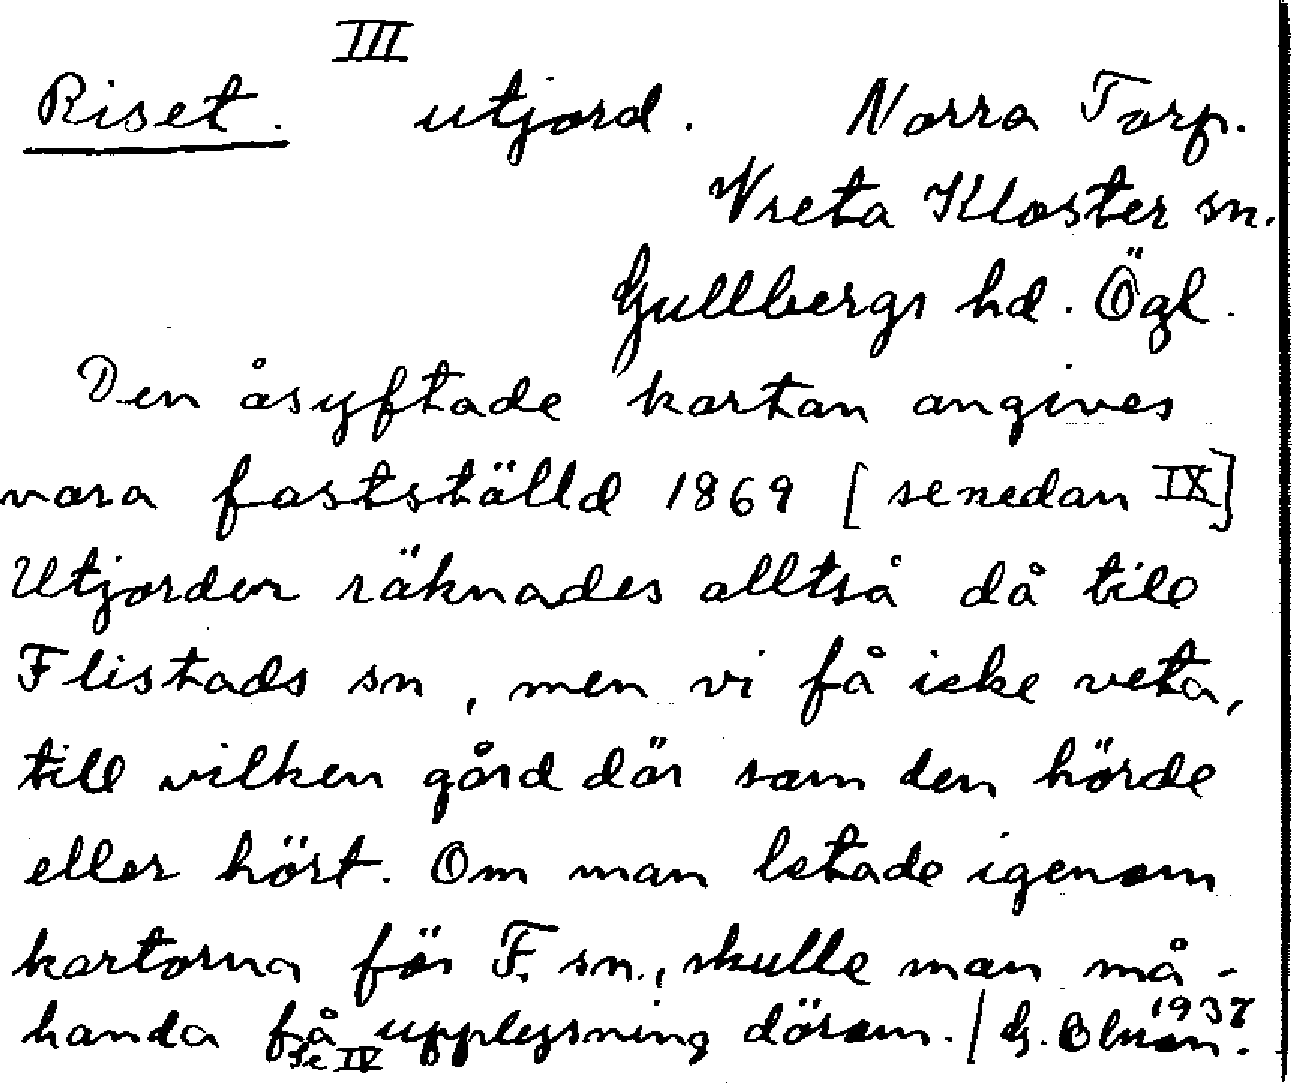 III
Riset. utjord. Norra Torp.
Vreta Kloster sn.
Gullbergs hd. Ögl.
Den åsyftade kartan angives
vara fastställd 1869 [senedan IX]
Utjorden räknades alltså då till
Flistads sn, men vi få icke veta,
till vilken gård där som den hörde
eller hört. Om man letade igenom
kartorna för F. sn., skulle man må-
handa få upplysning därom. / G. 1937
Se IV